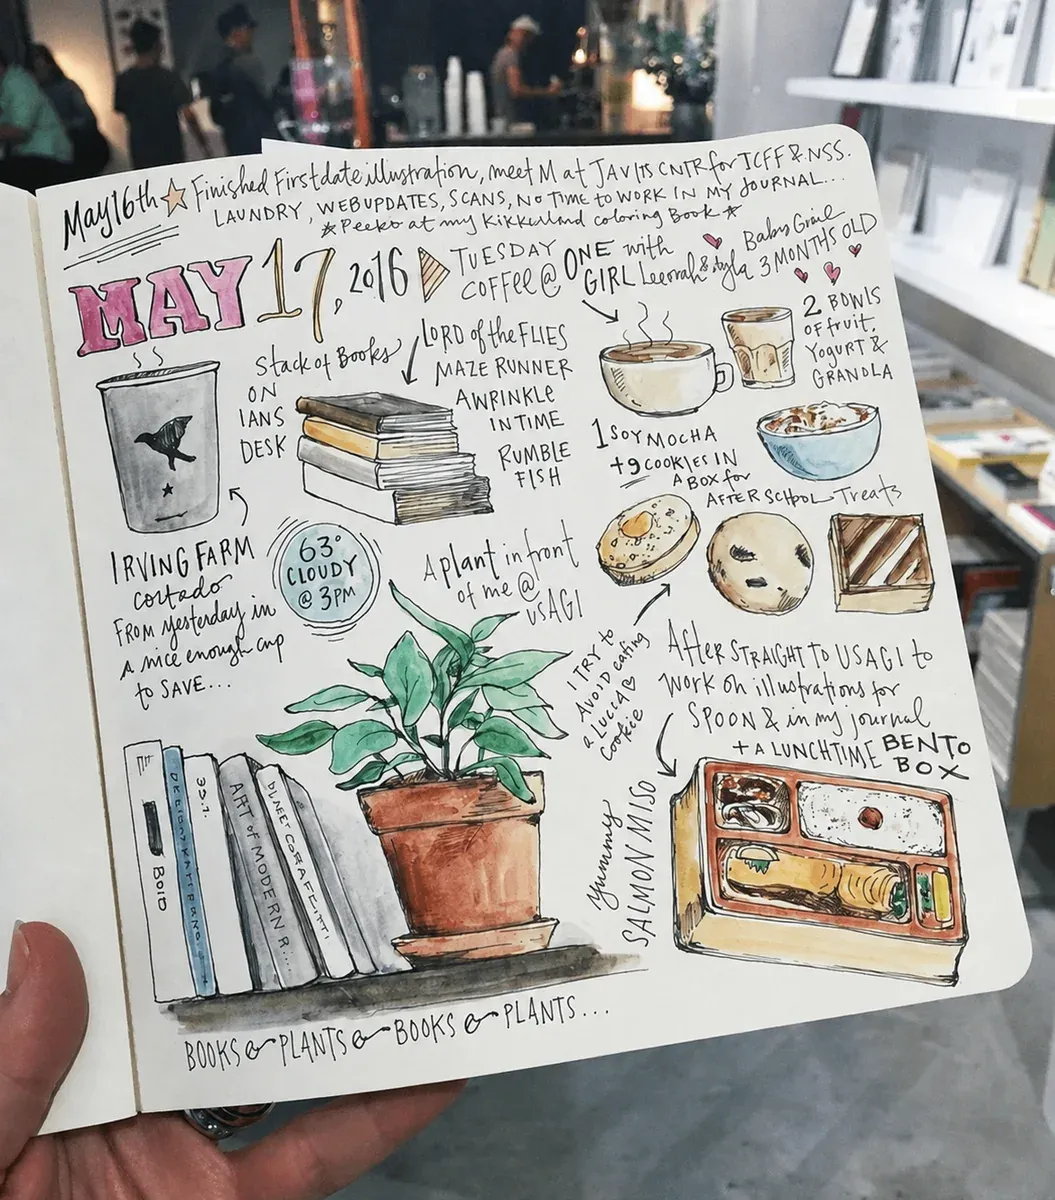 May 16th ☆ Finished First date illustration, meet M at JAVITS CNTR for ICFF & NSS.
LAUNDRY, WEB UPDATES, SCANS, No TIME to WORK IN MY JOURNAL...
☆Peeks at my Kikkerland coloring Book☆
MAY 17, 2016
TUESDAY
COFFEE @ ONE with
GIRL Leorah &
Baby Grace
3 MONTHS OLD
Stack of Books
ON
IANS
DESK
LORD of the FLIES
MAZE RUNNER
A WRINKLE
IN TIME
RUMBLE
FISH
2 BOWLS
OF fruit,
YOGURT &
GRANOLA
1 SOY MOCHA
+ 9 COOKIES IN
A BOX for
AFTER SCHOOL Treats
IRVING FARM
cortado
FROM yesterday in
a nice enough cup
to SAVE...
63°
CLOUDY
@ 3PM
A plant in front
of me @
USAGI
I TRY to
AVOID eating
a LUCCA ♡
Cookie
After STRAIGHT TO USAGI to
work on illustrations for
SPOON & in my journal
+ A LUNCHTIME BENTO
BOX
Yummy
SALMON MISO
BOLD
ART OF MODERN R...
BOOKS & PLANTS & BOOKS & PLANTS...